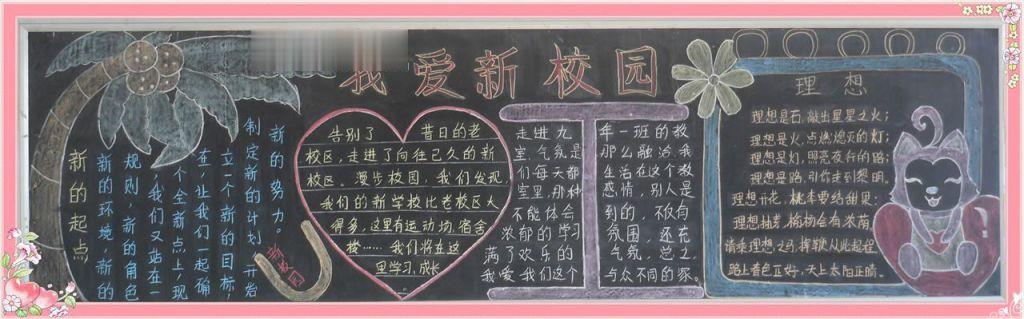 我爱新校园
新的起点
新的环境,新的
规则,新的角色
我们又站在一
个全新点上,现
在,让我们一起确
立一个新的目标,
制定新的计划,开始
新的努力。
告别了 昔日的老
校区,走进了向往已久的新
校区。漫步校园,我们发现,
我们的新学校比老校区大
得多,这里有运动场,宿舍
楼……我们将在这
里学习,成长
走进九 年一班的教
室,气氛是 那么融洽,我
们每天都 生活在这个教
室里,那种 感情,别人是
不能体会 到的,不仅有
浓郁的学习 氛围,还充
满了欢乐的 气氛,总之,
我爱我们这个 与众不同的家.
理想
理想是石,敲出星星之火;
理想是火,点燃熄灭的灯;
理想是灯,照亮夜行的路;
理想是路,引你走到黎明。
理想开花,桃李要结甜果;
理想抽芽,榆杨会有浓荫,
请乘理想之马,挥鞭从此起程
路上春色正好,天上太阳正晴。